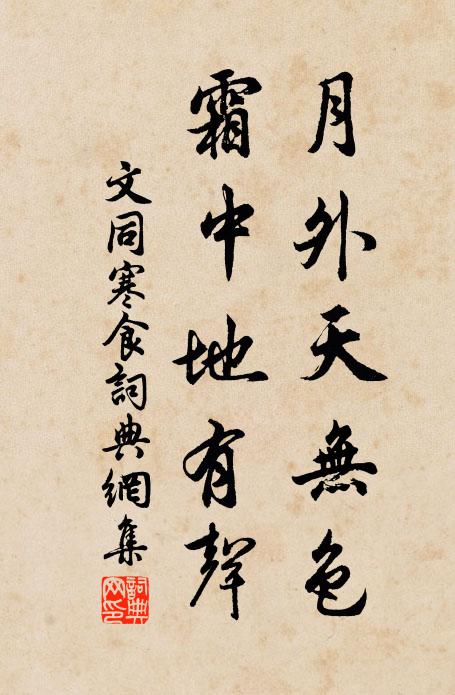 月外天無色
霜中地有聲
文同寒食詞典網集
詞典網印